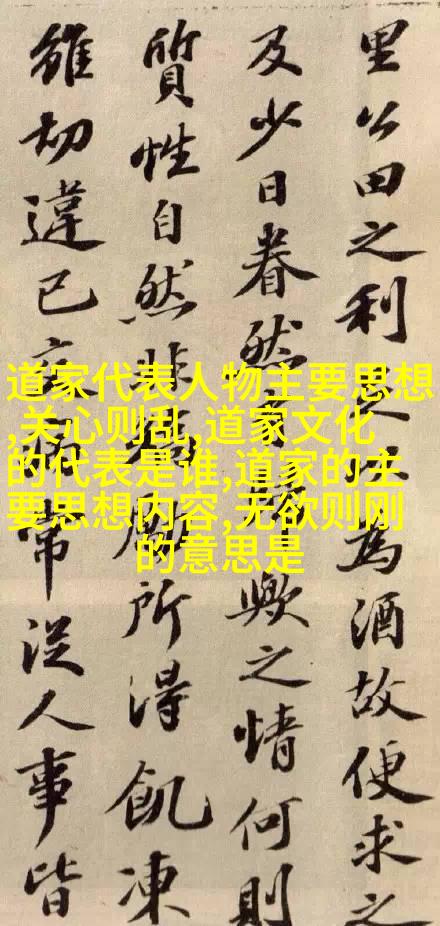 里公田之利為酒故便求之
及少日眷然歟之情何則
質性自然非勵所得飢凍
雖切違已常從人事皆
道家代表人物主要思想
,关心则乱,道家文化
的代表是谁,道家的主
要思想内容,无欲则刚
的意思是